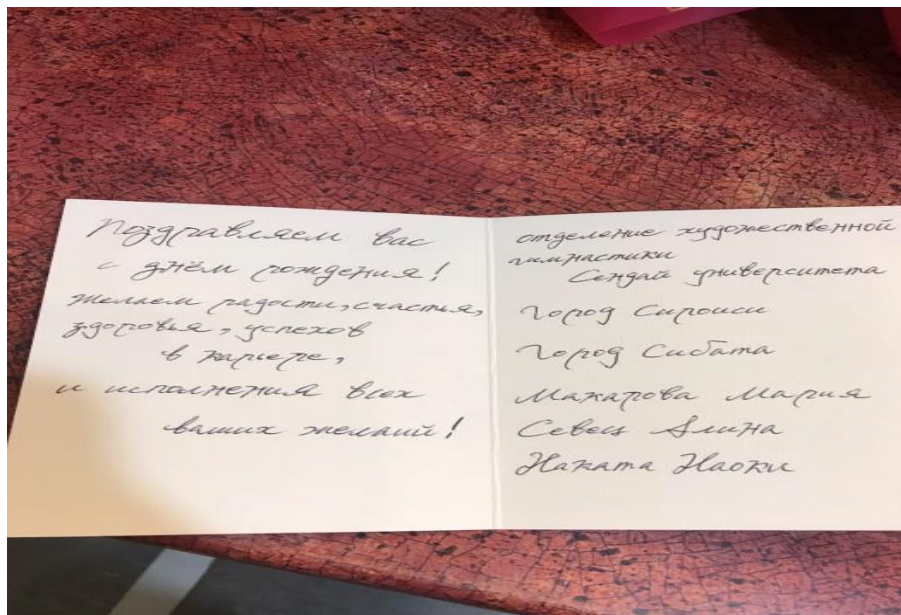 Поздравляем вас
с днём рождения!
Желаем радости, счастья,
здоровья, успехов
в карьере,
и исполнения всех
ваших желаий!
отделение художественной
гимнастики
Сендай университета
Город Сироиси
Город Сибата
Макарова Мария
Севец Алина
Наката Наоки